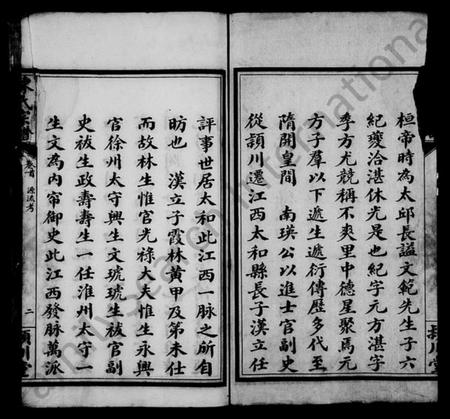 桓帝時為太邱長謚文範先生子六
紀夔洽湛休光是也紀字元方湛字
季方尤競稱不爽里中德星聚焉元
方子羣以下遞生遞衍傳歷多代至
隋開皇間 南瑛公以進士官副史
從頴川遷江西太和縣長子漢立任
評事世居太和此江西一脉之所自
昉也 漢立子霞林黃甲及第未仕
而故林生惟官光祿大夫惟生永興
官徐州太守興生文琥琥生袚官副
史袚生政壽壽生一任淮州太守一
生文為內帘御史此江西發脉萬派
卷首 源流考
二
頴川堂